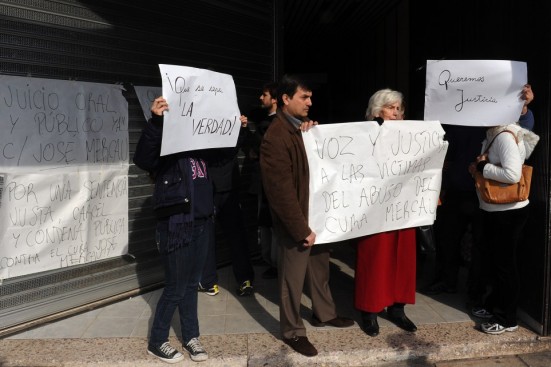 JUICIO ORAL
Y PUBLICO YA!
C/ JOSE MERCAU
POR UNA SENTENCIA
JUSTA CARCEL
Y CONDENA PUBLICA
CONTRA EL CURA JOSE
MERCAU
¡Que se sepa
LA
VERDAD!
VOZ Y JUSTICIA
A LAS VICTIMAS
DEL ABUSO DEL
CURA MERCAU
Queremos
Justicia